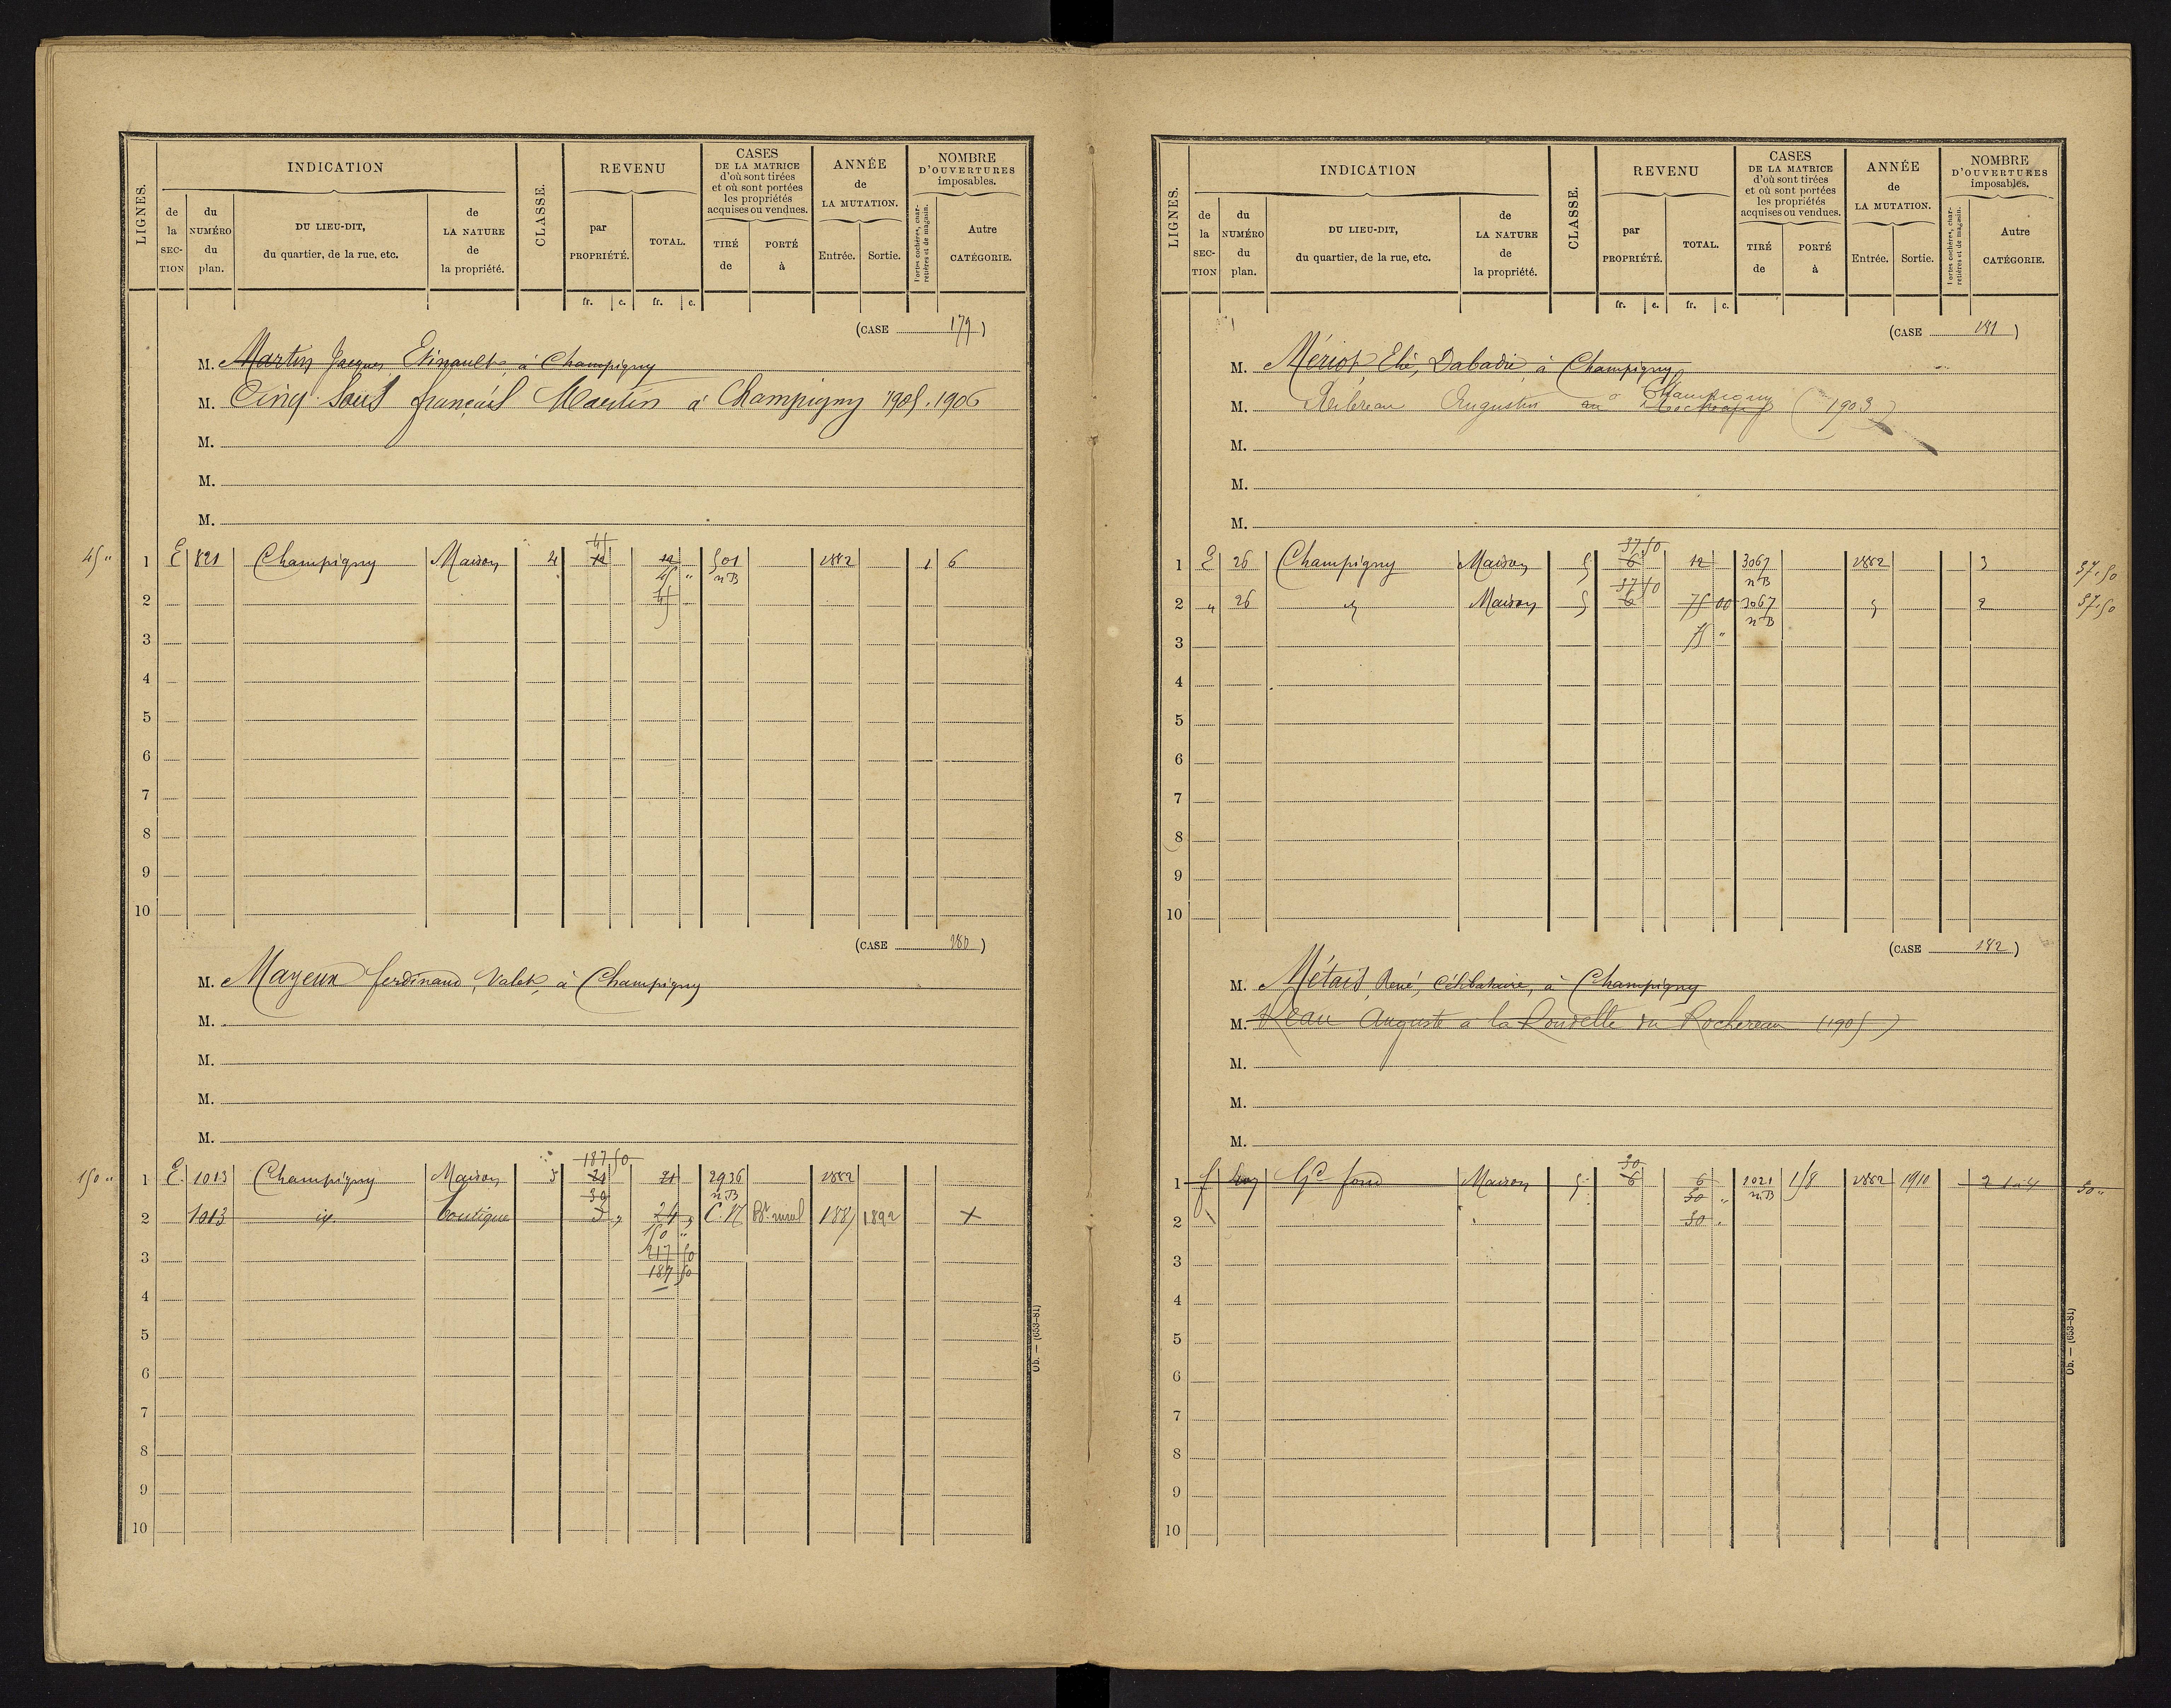 LIGNES.
INDICATION
de la SECTION
du NUMÉRO du plan.
DU LIEU-DIT, du quartier, de la rue, etc.
de LA NATURE de la propriété.
CLASSE.
REVENU
par PROPRIÉTÉ.
TOTAL.
CASES DE LA MATRICE d'où sont tirées et où sont portées les propriétés acquises ou vendues.
TIRÉ de
PORTÉ à
ANNÉE de LA MUTATION.
Entrée.
Sortie.
NOMBRE D'OUVERTURES imposables.
Portes cochères, charretières et de magasin.
Autre CATÉGORIE.
fr. c. fr. c.
(CASE 179)
M. Martin Jacques à Champigny
M. Cinq Sous français Martin à Champigny 1905.1906
M.
M.
M.
45
45 " 1 E 821 Champigny Maison 4 12 12 501 1882 1 6
45 " nB
2 45
3
4
5
6
7
8
9
10
(CASE 180)
M. Mayeux ferdinand, Valet, à Champigny
M.
M.
M.
M.
187 50
150 " 1 E. 1013 Champigny Maison 3 21 21 2936 1882
30 nB
2 1013 id. boutique 3 " 24 " C. 17 1887 1892 X
150 "
3 217 50
187 50
4
5
6
7
8
9
10
Ob. — (653-81)
LIGNES.
INDICATION
de la SECTION
du NUMÉRO du plan.
DU LIEU-DIT, du quartier, de la rue, etc.
de LA NATURE de la propriété.
CLASSE.
REVENU
par PROPRIÉTÉ.
TOTAL.
CASES DE LA MATRICE d'où sont tirées et où sont portées les propriétés acquises ou vendues.
TIRÉ de
PORTÉ à
ANNÉE de LA MUTATION.
Entrée.
Sortie.
NOMBRE D'OUVERTURES imposables.
Portes cochères, charretières et de magasin.
Autre CATÉGORIE.
fr. c. fr. c.
(CASE 181)
M. Mériot, Elie, Dabadie à Champigny
M. Augustin au à Champigny (1903)
M.
M.
M.
37.50
1 E 26 Champigny Maison 5 6 12 3067 1882 3 37.50
37 50 nB
2 " 26 Maison 5 6 75 00 3067 2 37.50
nB
3 75 "
4
5
6
7
8
9
10
(CASE 182)
M. Métais, René, Célibataire, à Champigny
M. Auguste à la Rondelle du Rochereau (1905)
M.
M.
M.
50
1 f Gd fond Maison 5 6 6 1021 158 1882 1910 2 50 "
50 " nB
2 50 "
3
4
5
6
7
8
9
10
Ob. — (653-81)